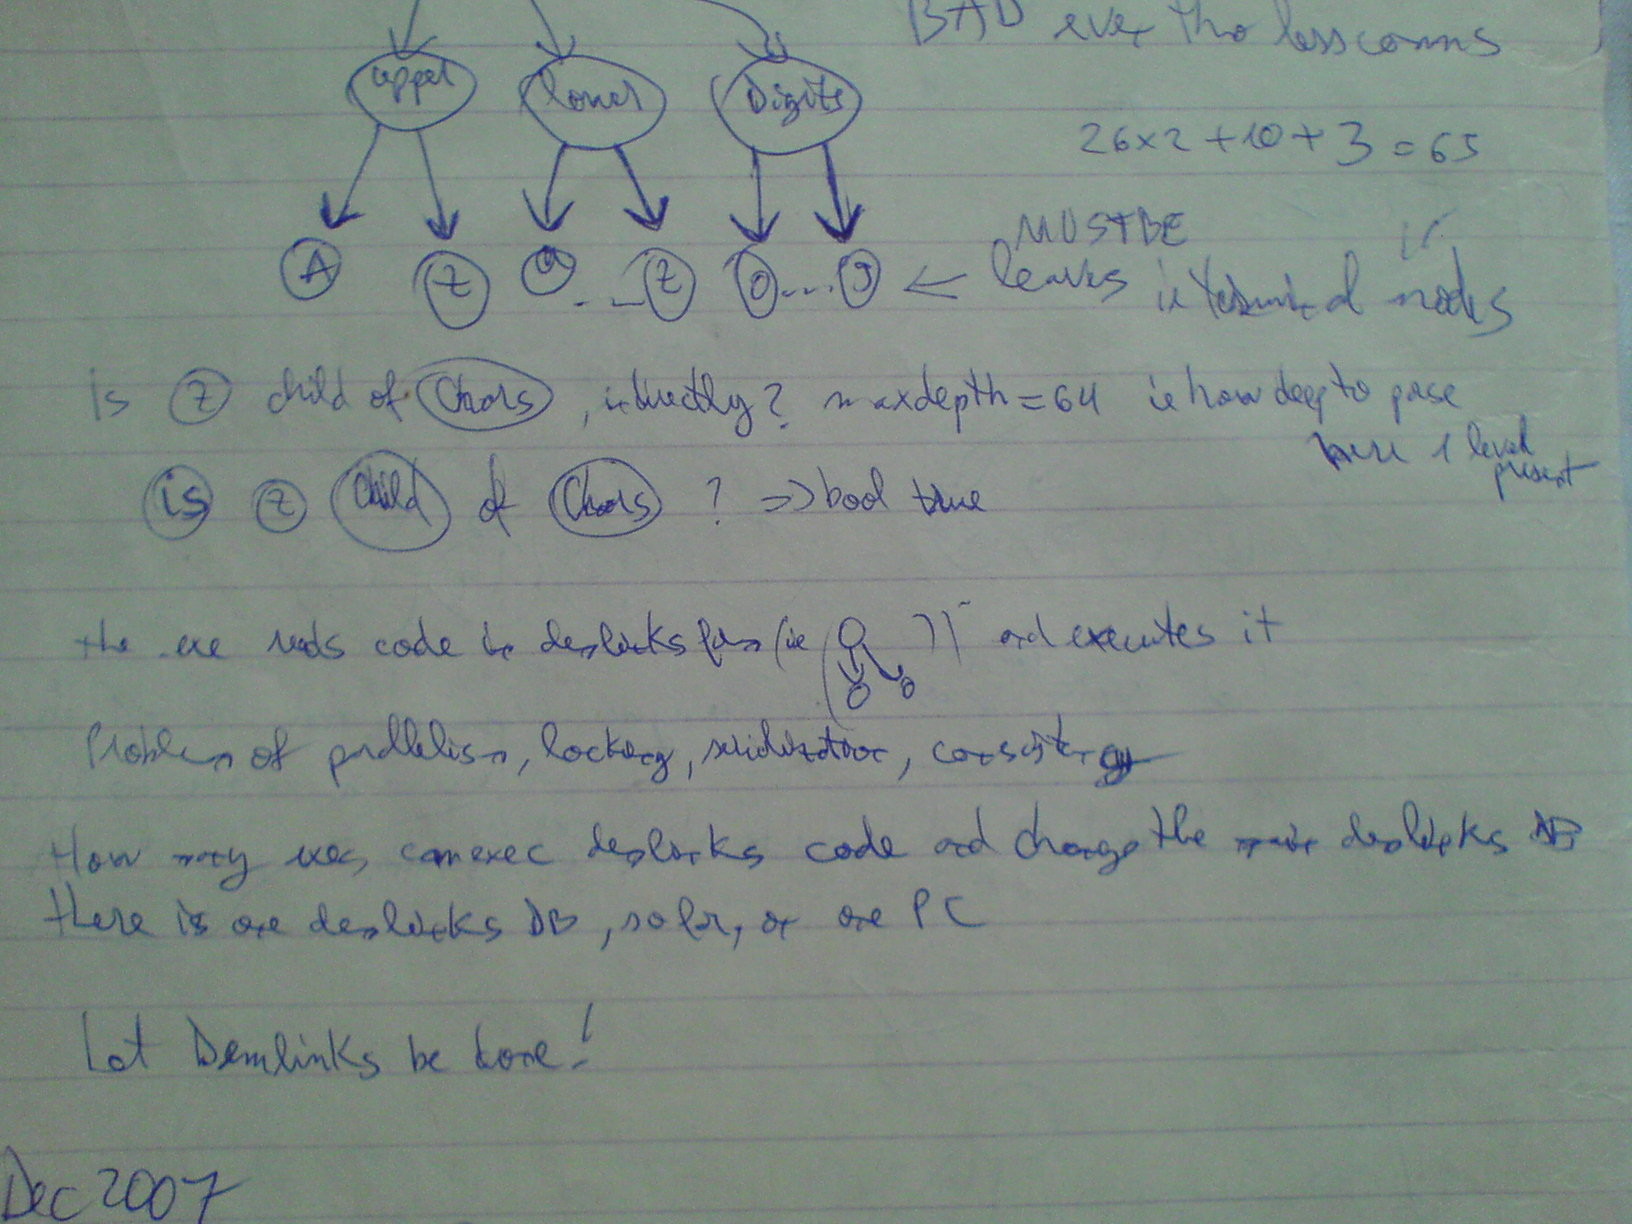 BAD even tho less conns
upper lower Digits
26x2+10+3=65
MUST BE
A z a ... z 0 .... 9 ← leaves ie terminal nodes
is z child of Chars, indirectly? maxdepth=64 ie how deep to parse
here 1 level
present
is z child of Chars ? => bool true
the exe reads code in demlinks form (ie ) and executes it
Problem of parallelism, locking, serialization, consistency
How many exes can exec demlinks code and change the main demlinks DB
there is one demlinks DB, so far, on one PC
Let Demlinks be done!
Dec 2007